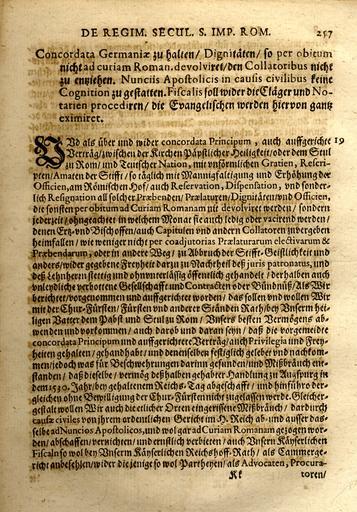 DE REGIM. SECUL. S. IMP. ROM. 257
Concordata Germaniæ zu halten/ Dignitäten/ so per obitum
nicht ad curiam Roman. devolvirt/ den Collatoribus nicht
zu entziehen. Nunciis Apostolicis in causis civilibus keine
Cognition zu gestatten. Fiscalis soll wider die Cläger und No-
tarien procediren/ die Evangelischen werden hiervon gantz
eximiret.
UNd als über und wider concordata Principum, auch auffgerichte 19
Verträg/ zwischen der Kirchen Päpstlicher Heiligkeit/ oder dem Stul
zu Rom/ und Teutscher Nation, mit unförmlichen Gratien, Rescri-
pten/ Amaten der Stifft/ so täglich mit Mannigfaltigung und Erhöhung der
Officien, am Römischen Hof/ auch Reservation, Dispensation, und sonder-
lich Resignation all solcher Præbenden/ Prælaturen/ Dignitäten und Officien,
die sonsten per obitum ad Curiam Romanam nit devolvirt werden/ sondern
jederzeit/ ohngeachtet in welchem Monat sie auch ledig oder vacirend werden/
denen Ertz- und Bischoffen/ auch Capituln und andern Collatoren zuvergeben
heimfallen/ wie weniger nicht per coadjutorias Prælaturarum electivarum &
Præbendarum, oder in andere Weg/ zu Abbruch der Stifft-Geistlichkeit und
anders/ wider gegebene Freyheit darzu zu Nachtheil deß juris patronatus, und
deß Lehnherrn stetig und ohnunterlässig öffentlich gehandelt/ derhalben auch
unleydliche verbottene Gesellschafft und Contracten oder Bündnüß/ Als Wir
berichtet/ vorgenommen und auffgerichtet worden/ das sollen und wollen Wir
mit der Chur-Fürsten/ Fürsten und anderer Ständen Rath/ bey Unserm hei-
ligen Vatter dem Pabst und Stul zu Rom/ Unsers besten Vermögens ab-
wenden und vorkommen/ auch darob und daran seyn/ daß die vorgemeldte
concordata Principum und auffgerichtete Verträg/ auch Privilegia und Frey-
heiten gehalten/ gehandhabt/ und denenselben festiglich gelebet und nachkom-
men/ jedoch was für Beschwehrungen darinn gefunden/ und Mißbräuch ent-
standen/ daß dieselbe/ vermög deßhalben gehabter Handlung zu Augspurg in
dem 1530. Jahr/ bey gehaltenem Reichs-Tag abgeschafft/ und hinführo der-
gleichen ohne Bewilligung der Chur-Fürsten nicht zugelassen werde. Gleicher-
gestalt wollen Wir auch die etlicher Orten eingerissene Mißbräuch/ dardurch
causæ civiles von ihrem ordentlichen Gericht im H. Reich ab- und ausser das-
selbe ad Nuncios Apostolicos, und wol gar ad Curiam Romanam gezogen wor-
den/ abschaffen/ vernichten/ und ernstlich verbieten/ auch Unsern Käyserlichen
Fiscaln so wol bey Unserm Käyserlichen Reichshoff-Rath/ als Cammerge-
richt anbefehlen/ wider die jenige so wol Partheyen/ als Advocaten, Procura-
Kk toren/